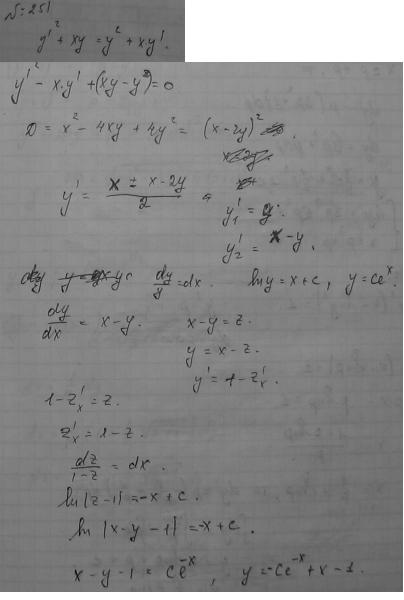 N=251
y'² + xy = y² + xy'.
y'² - x·y' + (xy - y²) = 0
D = x² - 4xy + 4y² = (x - 2y)²
y' = (x ± x - 2y)/2
y₁' = y.
y₂' = x - y.
dy/y = dx. ln y = x + c, y = ce^x.
dy/dx = x - y. x - y = z.
y = x - z.
y' = 1 - z'ₓ.
1 - z'ₓ = z.
z'ₓ = 1 - z.
dz/(1-z) = dx.
ln |z - 1| = -x + c.
ln |x - y - 1| = -x + c.
x - y - 1 = Ce^-x, y = -Ce^-x + x - 1.